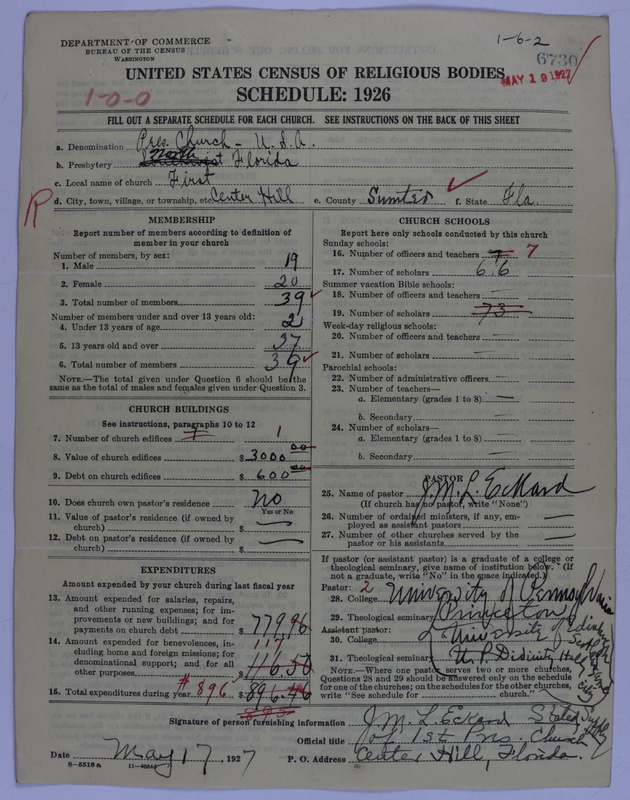 DEPARTMENT OF COMMERCE
BUREAU OF THE CENSUS
WASHINGTON
1-6-2
6730
MAY 19 1927
UNITED STATES CENSUS OF RELIGIOUS BODIES
1-0-0
SCHEDULE: 1926
FILL OUT A SEPARATE SCHEDULE FOR EACH CHURCH. SEE INSTRUCTIONS ON THE BACK OF THIS SHEET
a. Denomination Pres. Church - U.S.A.
b. Presbytery North Florida
c. Local name of church First
R
d. City, town, village, or township, etc. Center Hill e. County Sumter f. State Fla.
MEMBERSHIP
Report number of members according to definition of
member in your church
Number of members, by sex:
1. Male 19
2. Female 20
3. Total number of members 39
Number of members under and over 13 years old:
4. Under 13 years of age 2
5. 13 years old and over 37
6. Total number of members 39
NOTE.—The total given under Question 6 should be the
same as the total of males and females given under Question 3.
CHURCH BUILDINGS
See instructions, paragraphs 10 to 12
7. Number of church edifices 1 1
8. Value of church edifices $ 3000 00
9. Debt on church edifices $ 600 00
10. Does church own pastor's residence No
Yes or No
11. Value of pastor's residence (if owned by
church) $
12. Debt on pastor's residence (if owned by
church) $
EXPENDITURES
Amount expended by your church during last fiscal year
13. Amount expended for salaries, repairs,
and other running expenses; for im-
provements or new buildings; and for
payments on church debt $ 779.96
14. Amount expended for benevolences, in-
cluding home and foreign missions; for
denominational support; and for all
other purposes 117 116.50
15. Total expenditures during year $ 896 896.46
CHURCH SCHOOLS
Report here only schools conducted by this church
Sunday schools:
16. Number of officers and teachers 7 7
17. Number of scholars 66
Summer vacation Bible schools:
18. Number of officers and teachers
19. Number of scholars 73
Week-day religious schools:
20. Number of officers and teachers
21. Number of scholars
Parochial schools:
22. Number of administrative officers
23. Number of teachers—
a. Elementary (grades 1 to 8)
b. Secondary
24. Number of scholars—
a. Elementary (grades 1 to 8)
b. Secondary
PASTOR
25. Name of pastor J.M.L. Eckard
(If church has no pastor, write "None")
26. Number of ordained ministers, if any, em-
ployed as assistant pastors
27. Number of other churches served by the
pastor or his assistants
If pastor (or assistant pastor) is a graduate of a college or
theological seminary, give name of institution below. (If
not a graduate, write "No" in the space indicated.)
Pastor: 2
28. College University of Pennsylvania
29. Theological seminary Princeton
Assistant pastor:
30. College University of
31. Theological seminary U.P. Divinity Hall
NOTE.—Where one pastor serves two or more churches,
Questions 28 and 29 should be answered only on the schedule
for one of the churches; on the schedules for the other churches,
write "See schedule for church."
Signature of person furnishing information J.M.L. Eckard Stated Supply
Official title of 1st Pres. Church
Date May 17, 1927 P. O. Address Center Hill, Florida.